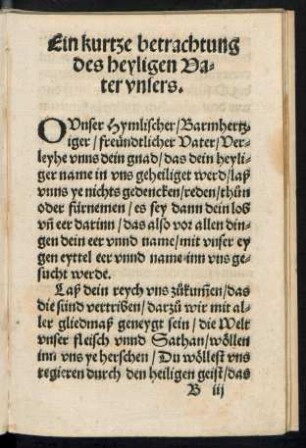 Ein kurtze betrachtung
des heyligen Va-
ter vnsers.
O Vnser Hymlischer/Barmhertz-
iger/freündtlicher Vater/Ver-
leyhe vnns dein gnad/das dein heyli-
ger name in vns geheiliget werd/laß
vnns ye nichts gedencken/reden/thůn
oder fürnemen/es sey dann dein lob
vñ eer darinn/das also vor allen din-
gen dein eer vnnd name/mit vnser ey
gen eyttel eer vnnd name inn vns ge-
sucht werde.
Laß dein reych vns zůkum̃en/das
die sünd vertriben/darzů wir mit al-
ler gliedmaß geneygt sein/die Welt
vnser fleisch vnnd Sathan/wöllen
inn vns ye herschen/Du wöllest vns
regieren durch den heiligen geist/das
B iij